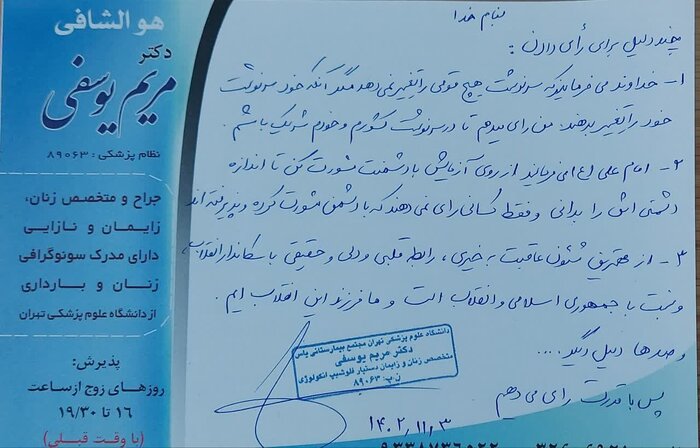 هو الشافی
دکتر
مریم یوسفی
نظام پزشکی : ۸۹۰۶۳
جراح و متخصص زنان،
زایمان و نازایی
دارای مدرک سونوگرافی
زنان و بارداری
از دانشگاه علوم پزشکی تهران
پذیرش:
روزهای زوج از ساعت
۱۶ تا ۱۹/۳۰
(با وقت قبلی)
بنام خدا
چند دلیل برای رأی دادن :
۱- خداوند می فرماید که سرنوشت هیچ قومی را تغییر نمی دهد مگر آنکه خود سرنوشت
خود را تغییر بدهند. من رای میدم تا در سرنوشت کشورم و خودم شریک باشم .
۲- امام علی (ع) می فرمایند از روی آزمایش با دشمنت مشورت کن تا اندازه
دشمنی اش را بدانی و فقط کسانی رای نمی دهند که با دشمن مشورت کرده و پذیرفته اند
۳- از مهمترین شئون عاقبت به خیری ، رابطه قلبی و دلی و حقیقی با سکاندار انقلاب
و نسبت با جمهوری اسلامی و انقلاب است و ما فرزند این انقلاب ایم .
و صدها دلیل دیگر ....
پس با قدرت رای می دهم
۱۴۰۲/۱۱/۳
دانشگاه علوم پزشکی تهران مجتمع بیمارستانی یاس
دکتر مریم یوسفی
متخصص زنان و زایمان دستیار فلوشیپ انکولوژی
ن.پ: ۸۹۰۶۳